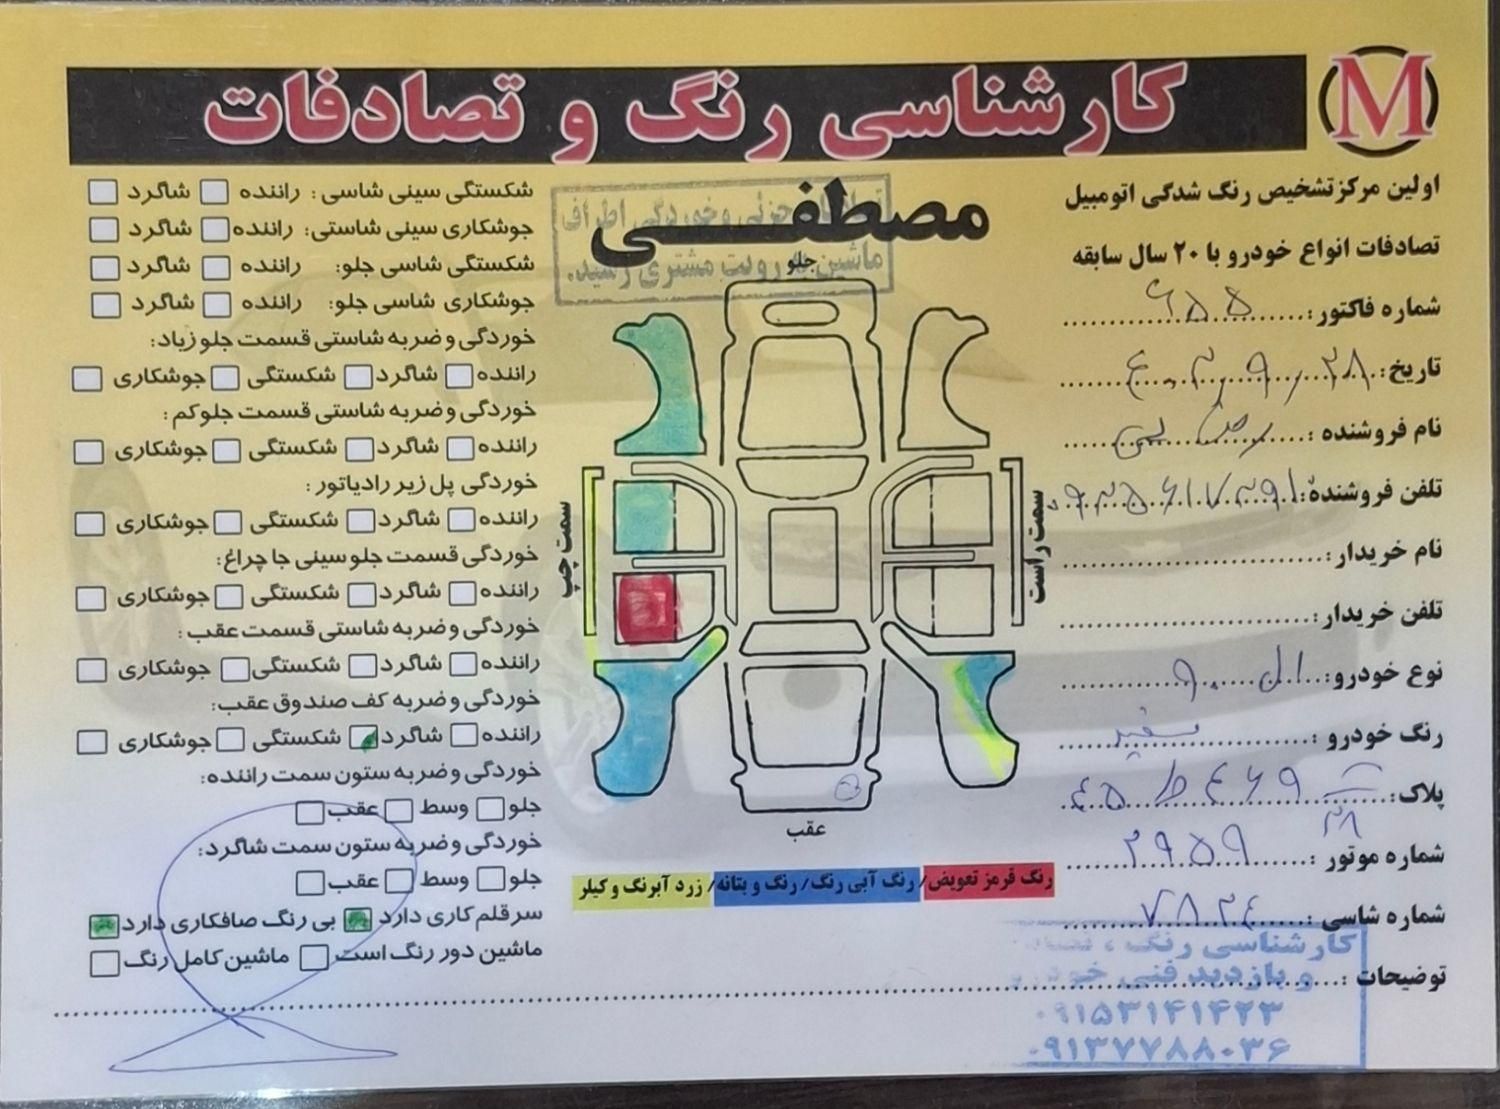 کارشناسی رنگ و تصادفات
M
اولین مرکز تشخیص رنگ شدگی اتومبیل
تصادفات انواع خودرو با ۲۰ سال سابقه
شماره فاکتور: ۶۵۵
تاریخ:
نام فروشنده:
تلفن فروشنده:
نام خریدار:
تلفن خریدار:
نوع خودرو: ال ۹۰
رنگ خودرو: سفید
پلاک:
شماره موتور: ۲۹۵۹
شماره شاسی: ۷۸۲۴
توضیحات:
کارشناسی رنگ ،
و بازدید فنی
۰۹۱۵۳۱۴۱۴۲۳
۰۹۱۳۷۷۸۸۰۳۶
مصطفی
جزئی و خوردگی اطراف
ماشین به رویت مشتری رسید.
جلو
سمت چپ
سمت راست
عقب
رنگ قرمز تعویض/ رنگ آبی رنگ/ رنگ و بتانه/ زرد آبرنگ و کیلر
شکستگی سینی شاسی: راننده شاگرد
جوشکاری سینی شاستی: راننده شاگرد
شکستگی شاسی جلو: راننده شاگرد
جوشکاری شاسی جلو: راننده شاگرد
خوردگی و ضربه شاستی قسمت جلو زیاد:
راننده شاگرد شکستگی جوشکاری
خوردگی و ضربه شاستی قسمت جلو کم:
راننده شاگرد شکستگی جوشکاری
خوردگی پل زیر رادیاتور:
راننده شاگرد شکستگی جوشکاری
خوردگی قسمت جلو سینی جا چراغ:
راننده شاگرد شکستگی جوشکاری
خوردگی و ضربه شاستی قسمت عقب:
راننده شاگرد شکستگی جوشکاری
خوردگی و ضربه کف صندوق عقب:
راننده شاگرد شکستگی جوشکاری
خوردگی و ضربه ستون سمت راننده:
جلو وسط عقب
خوردگی و ضربه ستون سمت شاگرد:
جلو وسط عقب
سر قلم کاری دارد بی رنگ صافکاری دارد
ماشین دور رنگ است ماشین کامل رنگ